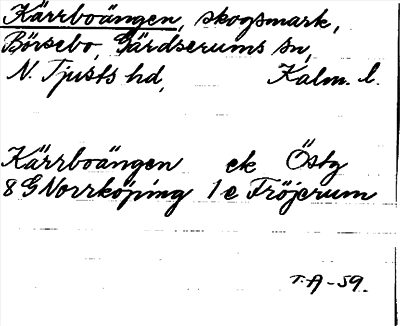 Kärrboängen, skogsmark,
Börsebo, Gärdserums sn,
N. Tjusts hd, Kalm. l.
Kärrboängen ek Östg
8 G Norrköping 1 e Fröjerum
T.A-59.